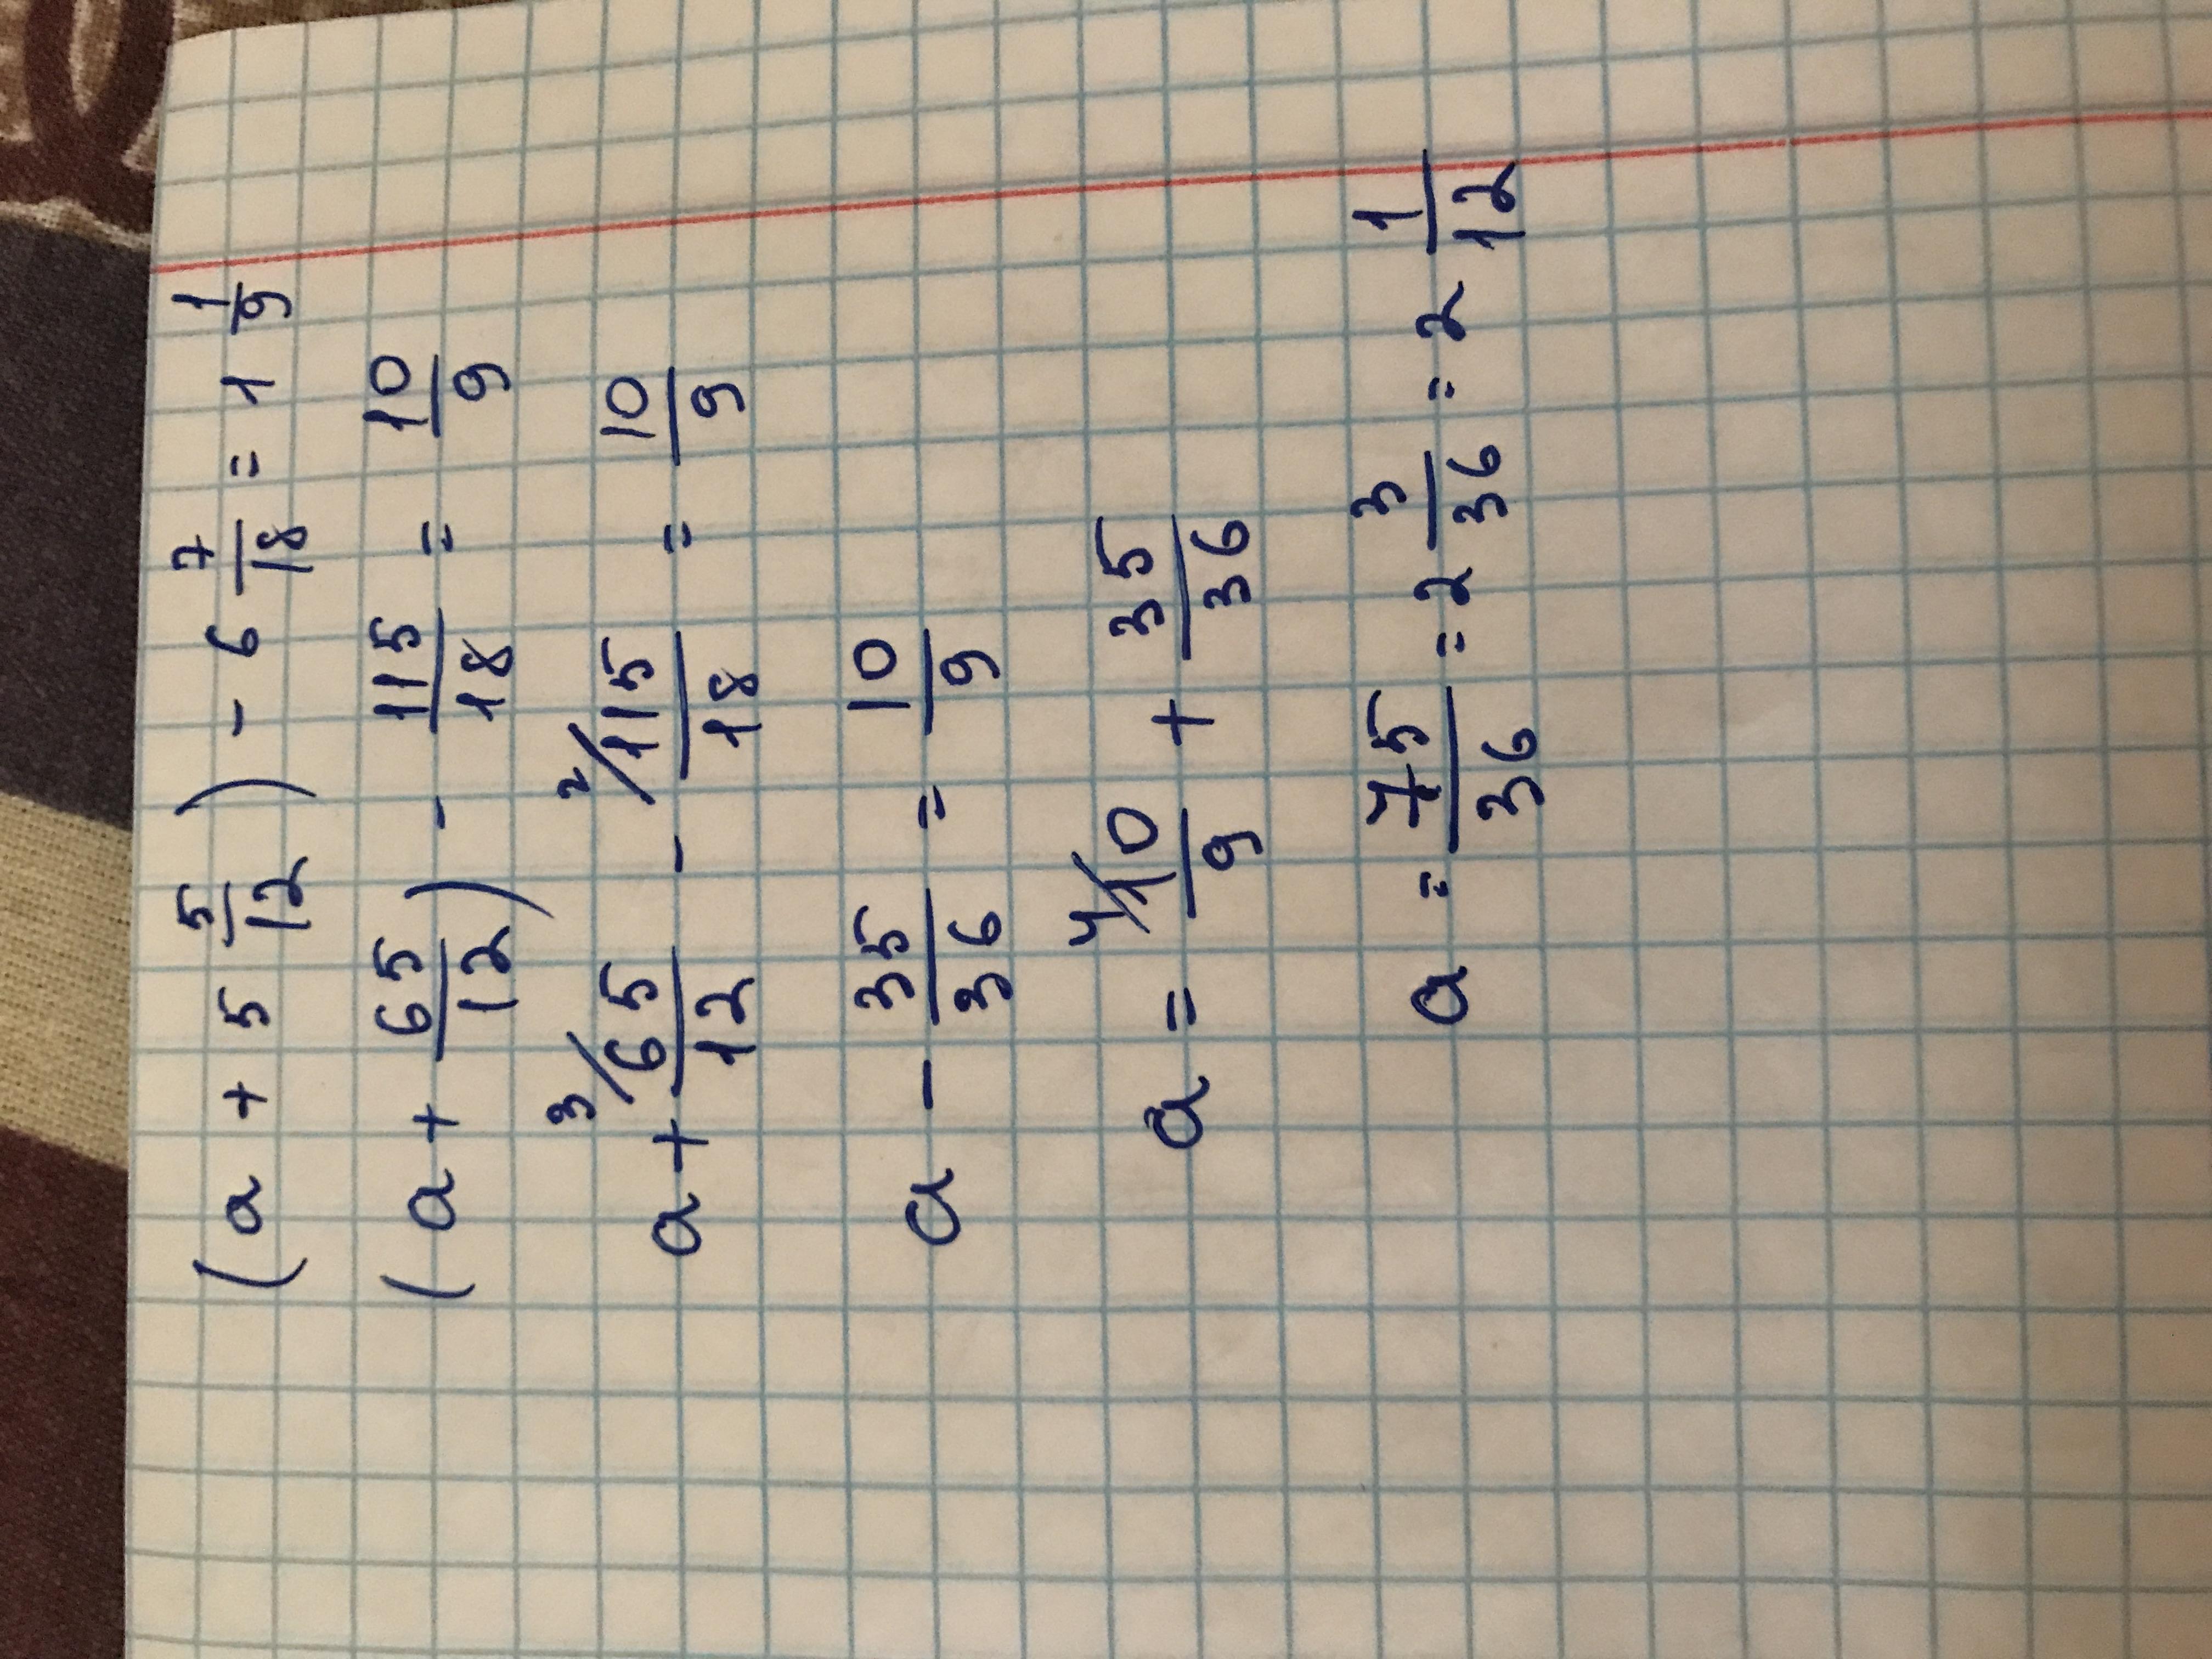 (a + 5 5/12) - 6 7/18 = 1 1/9
(a + 65/12) - 115/18 = 10/9
a + 3/ 65/12 - 2/ 115/18 = 10/9
a - 35/36 = 10/9
a = 4/ 10/9 + 35/36
a = 75/36 = 2 3/36 = 2 1/12